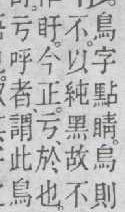 鳥字點睛。烏則
不。以純黑故
盱今正。亏於也。
亏呼者謂此鳥